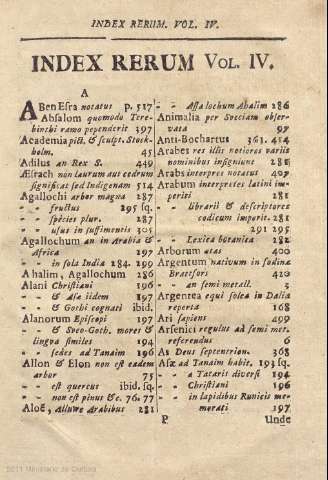 INDEX RERUM. VOL. IV.
INDEX RERUM VOL. IV.
A
ABen Esra notatus p. 517
Absalom quomodo Tere-
binthi ramo pependerit 397
Academia pict. & sculpt. Stock-
holm. 45
Adilus an Rex S. 449
Æsrach non laurum aut cedrum
significat sed Indigenam 514
Agallochi arbor magna 287
- - fructus 295 sq.
- - species plur. 287
- - usus in suffimenis 305
Agallochum an in Arabia &
Africa 297
- - in sola India 284. 299
Ahalim, Agallochum 286
Alani Christiani 196
- - & Asæ iidem 197
- - & Gothi cognati ibid.
Alanorum Episcopi 197
- - & Sveo-Goth. mores &
lingua similes 194
- - sedes ad Tanaim 196
Allon & Elon non est eadem
arbor 75
- - est quercus ibid. sq.
- - non est pinus &c. 76. 77
Aloë, Alluwe Arabibus 281
- - Assa lochum Ahalim 286
Animalia per Sveciam obser-
vata 97
Anti-Bochartus 363. 454
Arabes res illis notiores variis
nominibus insigniunt 281
Arabs interpres notatus 497
Arabum interpretes latini im-
periti 281
- - librarii & descriptores
codicum imperit. 281
291 295
- - Lexica botanica 282
Arborum ætas 400
Argentum nativum in fodina
Braefors 420
- - an semi metall. 3
Argentea equi solea in Dalia
reperta 168
Ari sapiens 499
Arsenici regulus ad semi met.
referendus 6
As Deus septentrion. 368
Asæ ad Tanaim habit. 193 sq.
- - a Tataris diversi 194
- - Christiani 196
- - in lapidibus Runicis me-
morati 197
P Unde